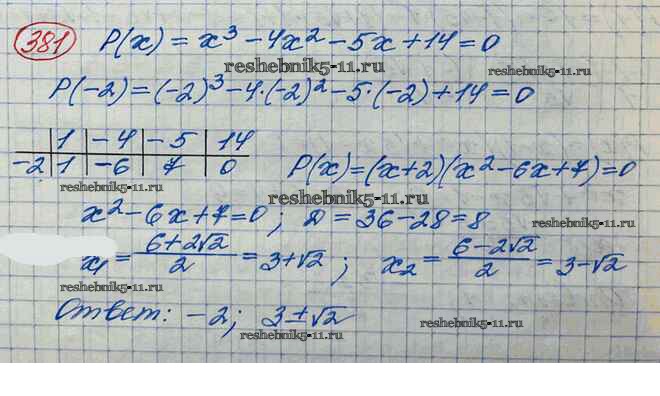 381 P(x) = x³ - 4x² - 5x + 14 = 0
reshebnik5-11.ru
P(-2) = (-2)³ - 4·(-2)² - 5·(-2) + 14 = 0
1 | -4 | -5 | 14
-2 | 1 | -6 | 7 | 0 P(x) = (x+2)(x² - 6x + 7) = 0
reshebnik5-11.ru reshebnik5-11.ru
x² - 6x + 7 = 0; D = 36 - 28 = 8 reshebnik5-11.ru
x₁ = (6 + 2√2)/2 = 3 + √2; x₂ = (6 - 2√2)/2 = 3 - √2
reshebnik5-11.ru
Ответ: -2; 3 ± √2
reshebnik5-11.ru reshebnik5-11.ru